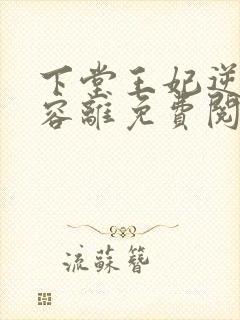 下堂王妃逆
容離免費閱
流蘇簪